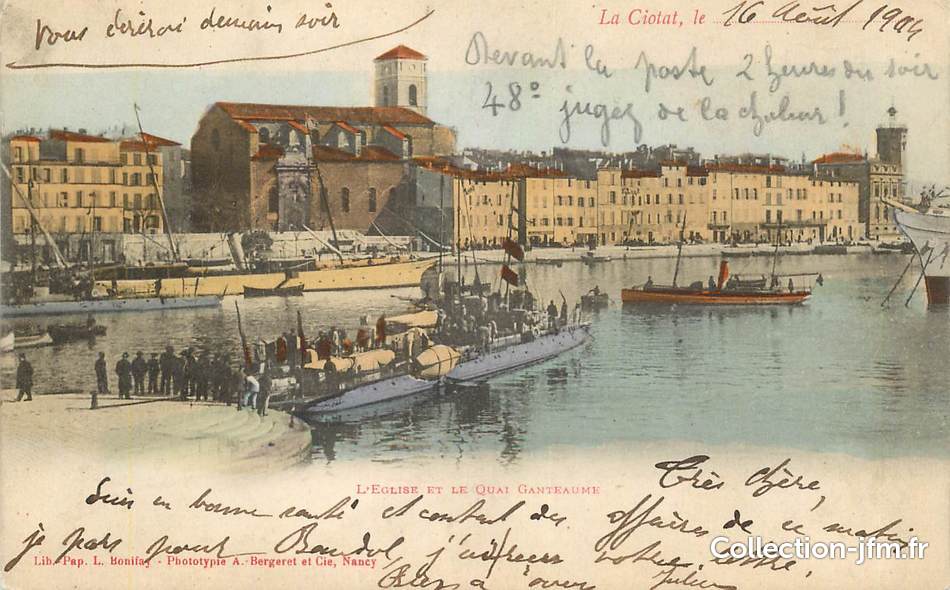 vous écrirai demain soir
La Ciotat, le 16 Août 1904
Devant la poste 2 heures du soir
48° jugez de la chaleur !
L'Eglise et le Quai Ganteaume
Très chère,
Suis en bonne santé et content des affaires de ce matin
je pars pour Bandol, j'ai reçu votre lettre,
à vous Julien
Lib. Pap. L. Bonifay - Phototypie A. Bergeret et Cie, Nancy
Collection-jfm.fr